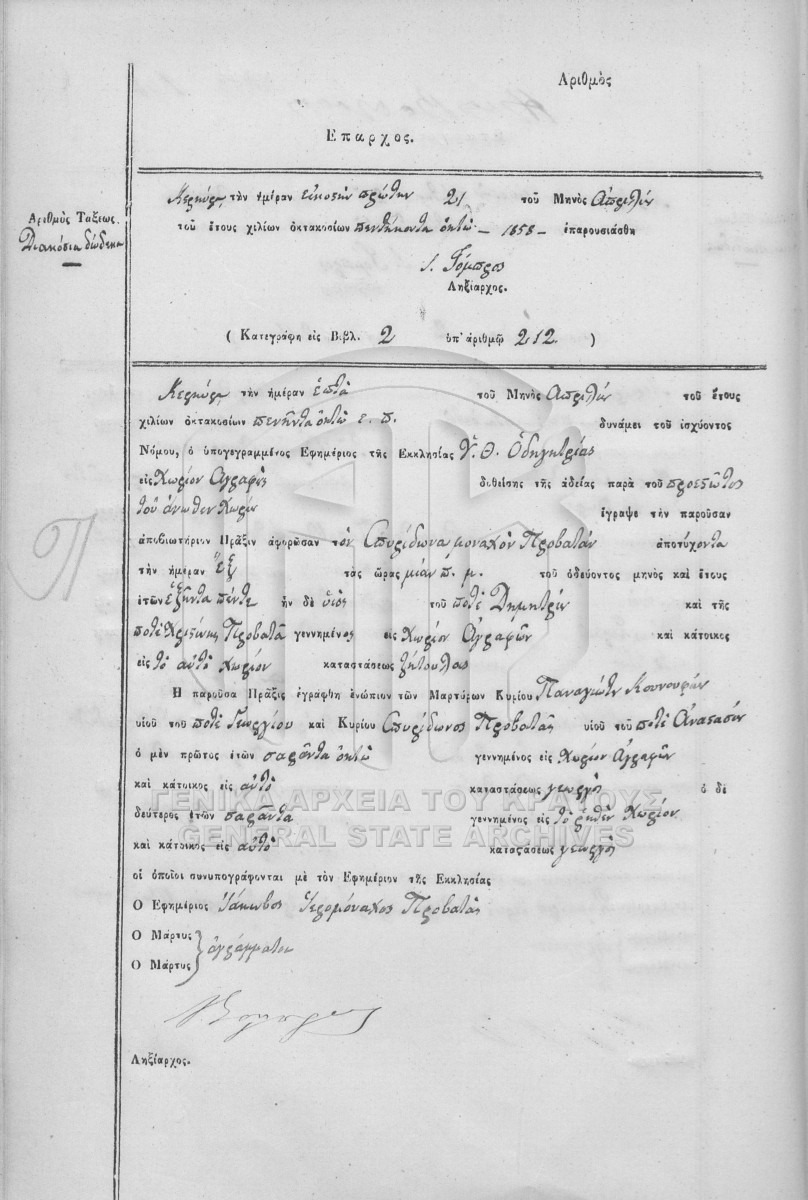 Αριθμὸς
Επαρχος.
Αριθμὸς Τάξεως.
Διακόσια δώδεκα
Κερκύρᾳ τὴν ἡμέραν εἰκοστὴν πρώτην 21 τοῦ Μηνὸς Ἀπριλίου
τοῦ ἔτους χιλίων ὀκτακοσίων πεντήκοντα ὀκτὼ - 1858 - ἐπαρουσιάσθη
Ληξίαρχος.
( Κατεγράφη εἰς Βιβλ. 2 ὑπ' ἀριθμῷ 212. )
Κερκύρᾳ τὴν ἡμέραν ἑπτὰ τοῦ Μηνὸς Ἀπριλίου τοῦ ἔτους
χιλίων ὀκτακοσίων πενῆντα ὀκτὼ ε. π. δυνάμει τοῦ ἰσχύοντος
Νόμου, ὁ ὑπογεγραμμένος Ἐφημέριος τῆς Ἐκκλησίας Ὑ. Θ. Ὁδηγητρίας
εἰς Χωρίον Αγραφοὺς διθείσης τῆς ἀδείας παρὰ τοῦ προεστῶτος
τοῦ ἄνωθεν Χωρίου ἔγραψε τὴν παροῦσαν
ἀποβιωτήριον Πρᾶξιν ἀφορῶσαν τὸν Σπυρίδωνα μοναχὸν Προβατᾶν ἀποτύχοντα
τὴν ἡμέραν Ἓξ τὰς ὥρας μίαν π. μ. τοῦ ὁδεύοντος μηνὸς καὶ ἔτους
ἐτῶν ἑξῆντα πέντε ἦν δὲ υἱὸς τοῦ ποτὲ Δημητρίου καὶ τῆς
ποτὲ Χριστίνης Προβατᾶ γεννημένος εἰς Χωρίον Αγραφῶν καὶ κάτοικος
εἰς τὸ αὐτὸ Χωρίον καταστάσεως ζήτουλας
Ἡ παροῦσα Πρᾶξις ἐγράφθη ἐνώπιον τῶν Μαρτύρων Κυρίου Παναγιώτου Κουνουφάου
υἱοῦ τοῦ ποτὲ Γεωργίου καὶ Κυρίου Σπυρίδωνος Προβατᾶς υἱοῦ τοῦ ποτὲ Ἀναστασίου
ὁ μὲν πρῶτος ἐτῶν σαρᾶντα ὀκτὼ γεννημένος εἰς Χωρίον Αγραφῶν
καὶ κάτοικος εἰς αὐτὸ καταστάσεως γεωργὸς ὁ δὲ
δεύτερος ἐτῶν σαρᾶντα γεννημένος εἰς τὸ ῥηθὲν Χωρίον
καὶ κάτοικος εἰς αὐτὸ καταστάσεως γεωργὸς
οἱ ὁποῖοι συνυπογράφονται μὲ τὸν Εφημέριον τῆς Εκκλησίας
Ο Εφημέριος Ἰάκωβος Ἱερομόναχος Προβατᾶς
Ο Μάρτυς
Ο Μάρτυς
ἀγράμματοι
Ληξίαρχος.
ΓΕΝΙΚΑ ΑΡΧΕΙΑ ΤΟΥ ΚΡΑΤΟΥΣ
GENERAL STATE ARCHIVES